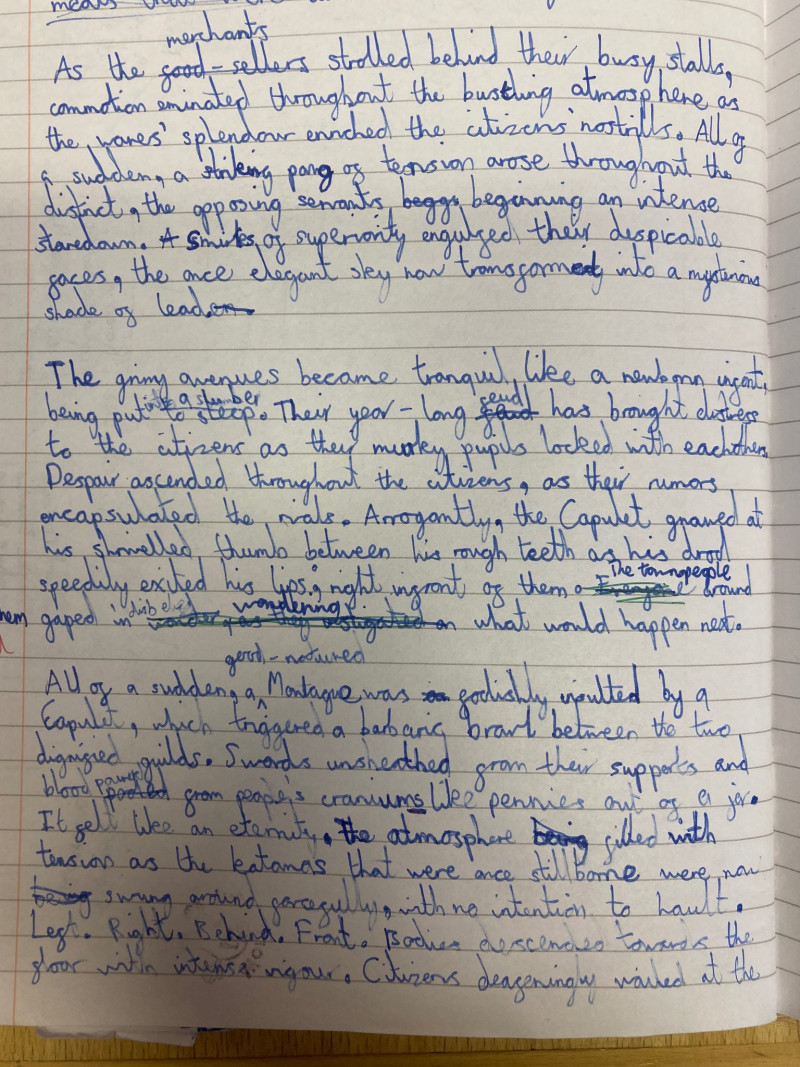 means that
merchants
As the good-sellers strolled behind their busy stalls,
commotion eminated throughout the bustling atmosphere as
the wares' splendour enriched the citizens' nostrills. All of
a sudden, a striking pang of tension arose throughout the
district, the opposing servants beggi beginning an intense
staredown. A smirks of superiority engulfed their despicable
faces, the once elegant sky now transformed into a mysterious
shade of leaden
The grimy avenues became tranquil, like a newborn infant,
into a slumber feud
being put to sleep. Their year-long feud has brought distress
to the citizens as their murky pupils locked with eachother.
Despair ascended throughout the citizens, as their rumors
encapsulated the rivals. Arrogantly, the Capulet gnawed at
his shrivelled thumb between his rough teeth as his drool
The townpeople
speedily exited his lips, right infront of them. Everyone around
disbelief wondering
hem gaped in wonder, as they on what would happen next.
good-natured
All of a sudden, a Montague was so godishly insulted by a
Capulet, which triggered a barbaric brawl between the two
dignified guilds. Swords unsheathed from their supports and
blood poured pooled from people's craniums like pennies out of a jar.
It felt like an eternity. The atmosphere being filled with
tension as the katanas that were once stillborne were now
being swung around forcefully, with no intention to hault.
Left. Right. Behind. Front. Bodies descended towards the
floor with intense vigour. Citizens deafeningly wailed at the